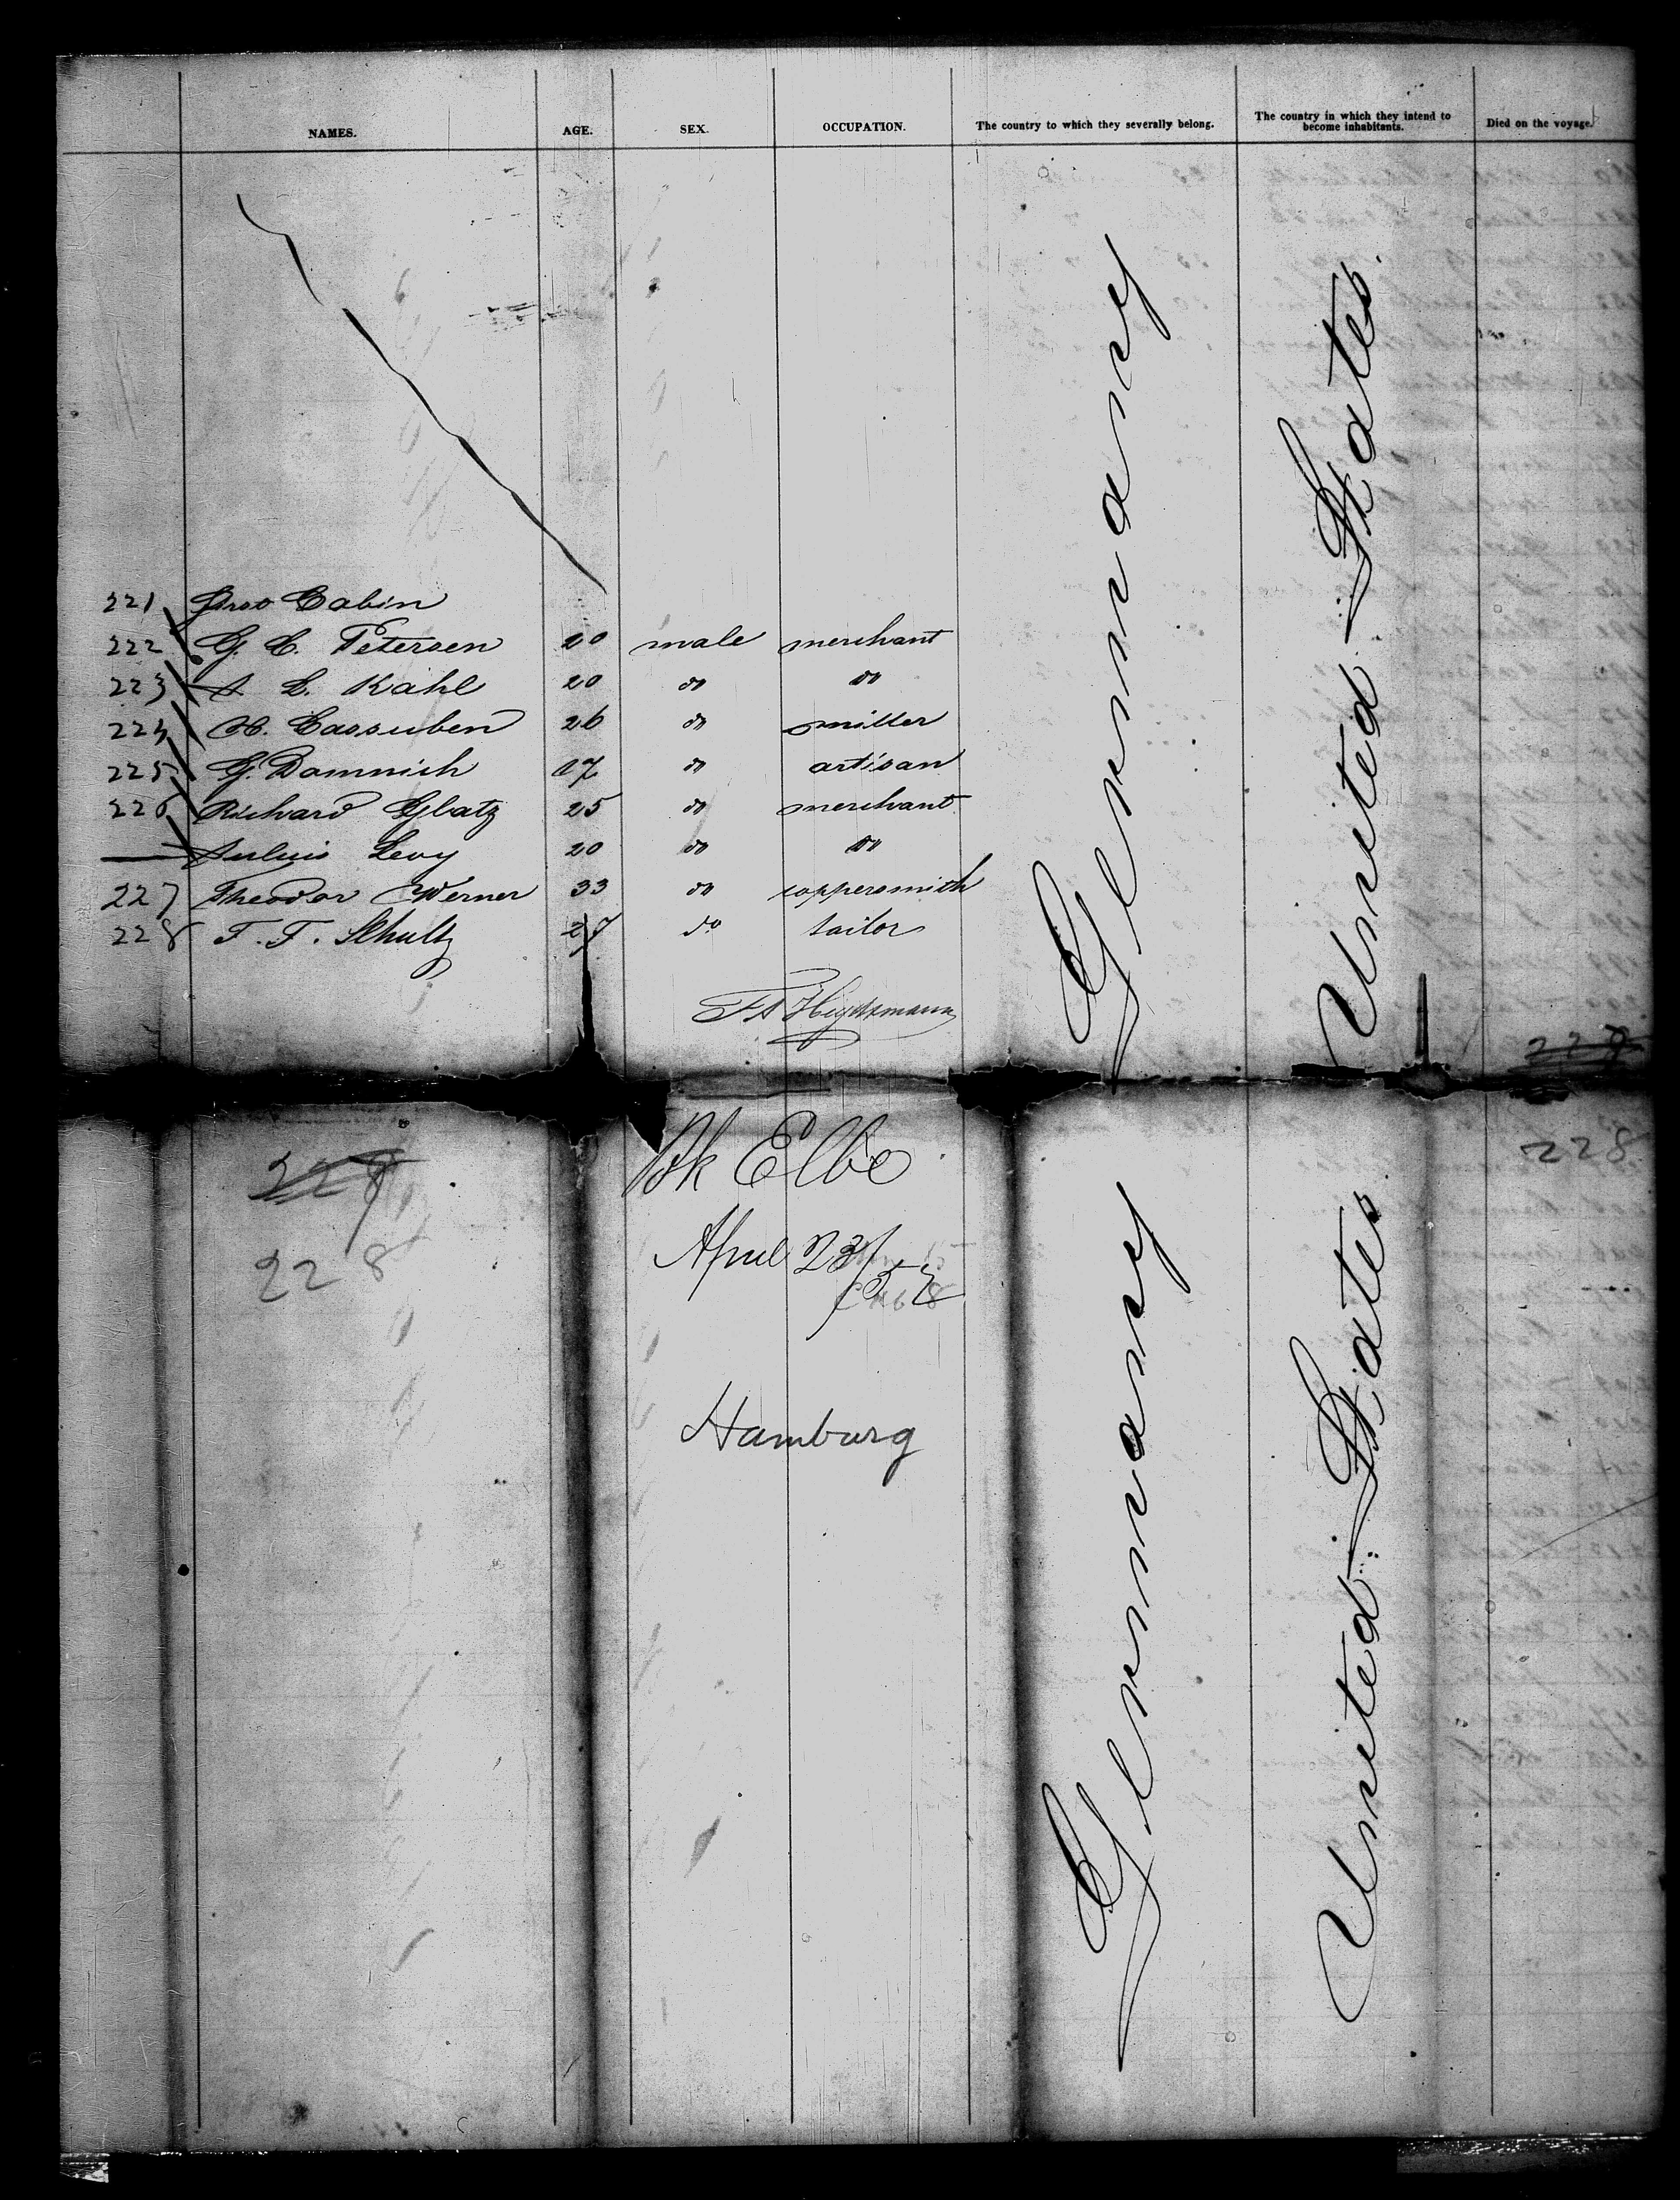 NAMES. AGE. SEX. OCCUPATION. The country to which they severally belong. The country in which they intend to become inhabitants. Died on the voyage.
221 First Cabin
222 G. C. Petersen 20 male merchant
223 A L. Kahl 20 do do
224 H. Cassuben 26 do miller
225 G. Domnich 17 do artisan
226 Richard Glatz 25 do merchant
Julius Levy 20 do do
227 Theodor Werner 33 do coppersmith
228 F. F. Schultz 27 do tailor
Germany
United States
228
Bk Elbe
228
April 23/57
228
Hamburg
Germany
United States